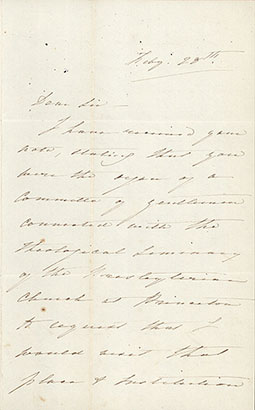 Feby. 28th.
Dear Sir -
I have received your
note, stating that you
were the organ of a
Committee of gentlemen
connected with the
Theological Seminary
of the Presbyterian
Church at Princeton
to request that I
would visit that
place & Institution